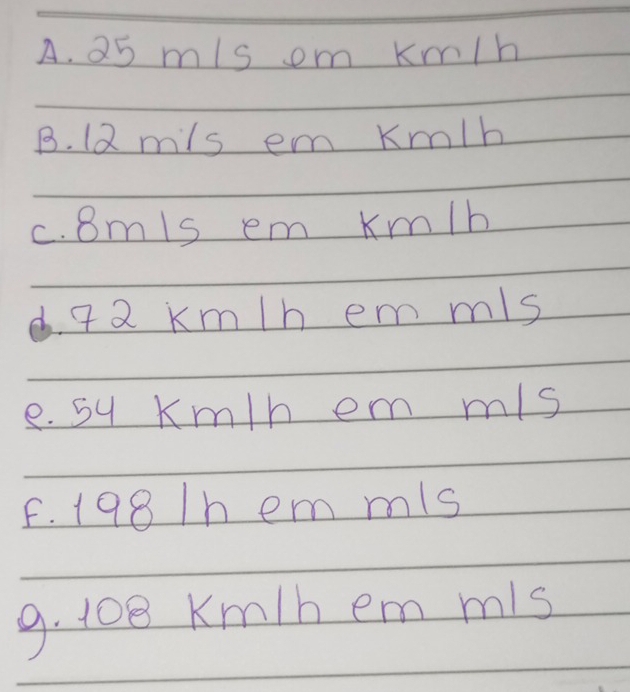 A. 25 m/s em Km/h
B. 12 m/s em Km/h
C. 8m/s em Km/h
d. 72 Km/h em m/s
e. 54 Km/h em m/s
F. 198 /h em m/s
g. 108 Km/h em m/s